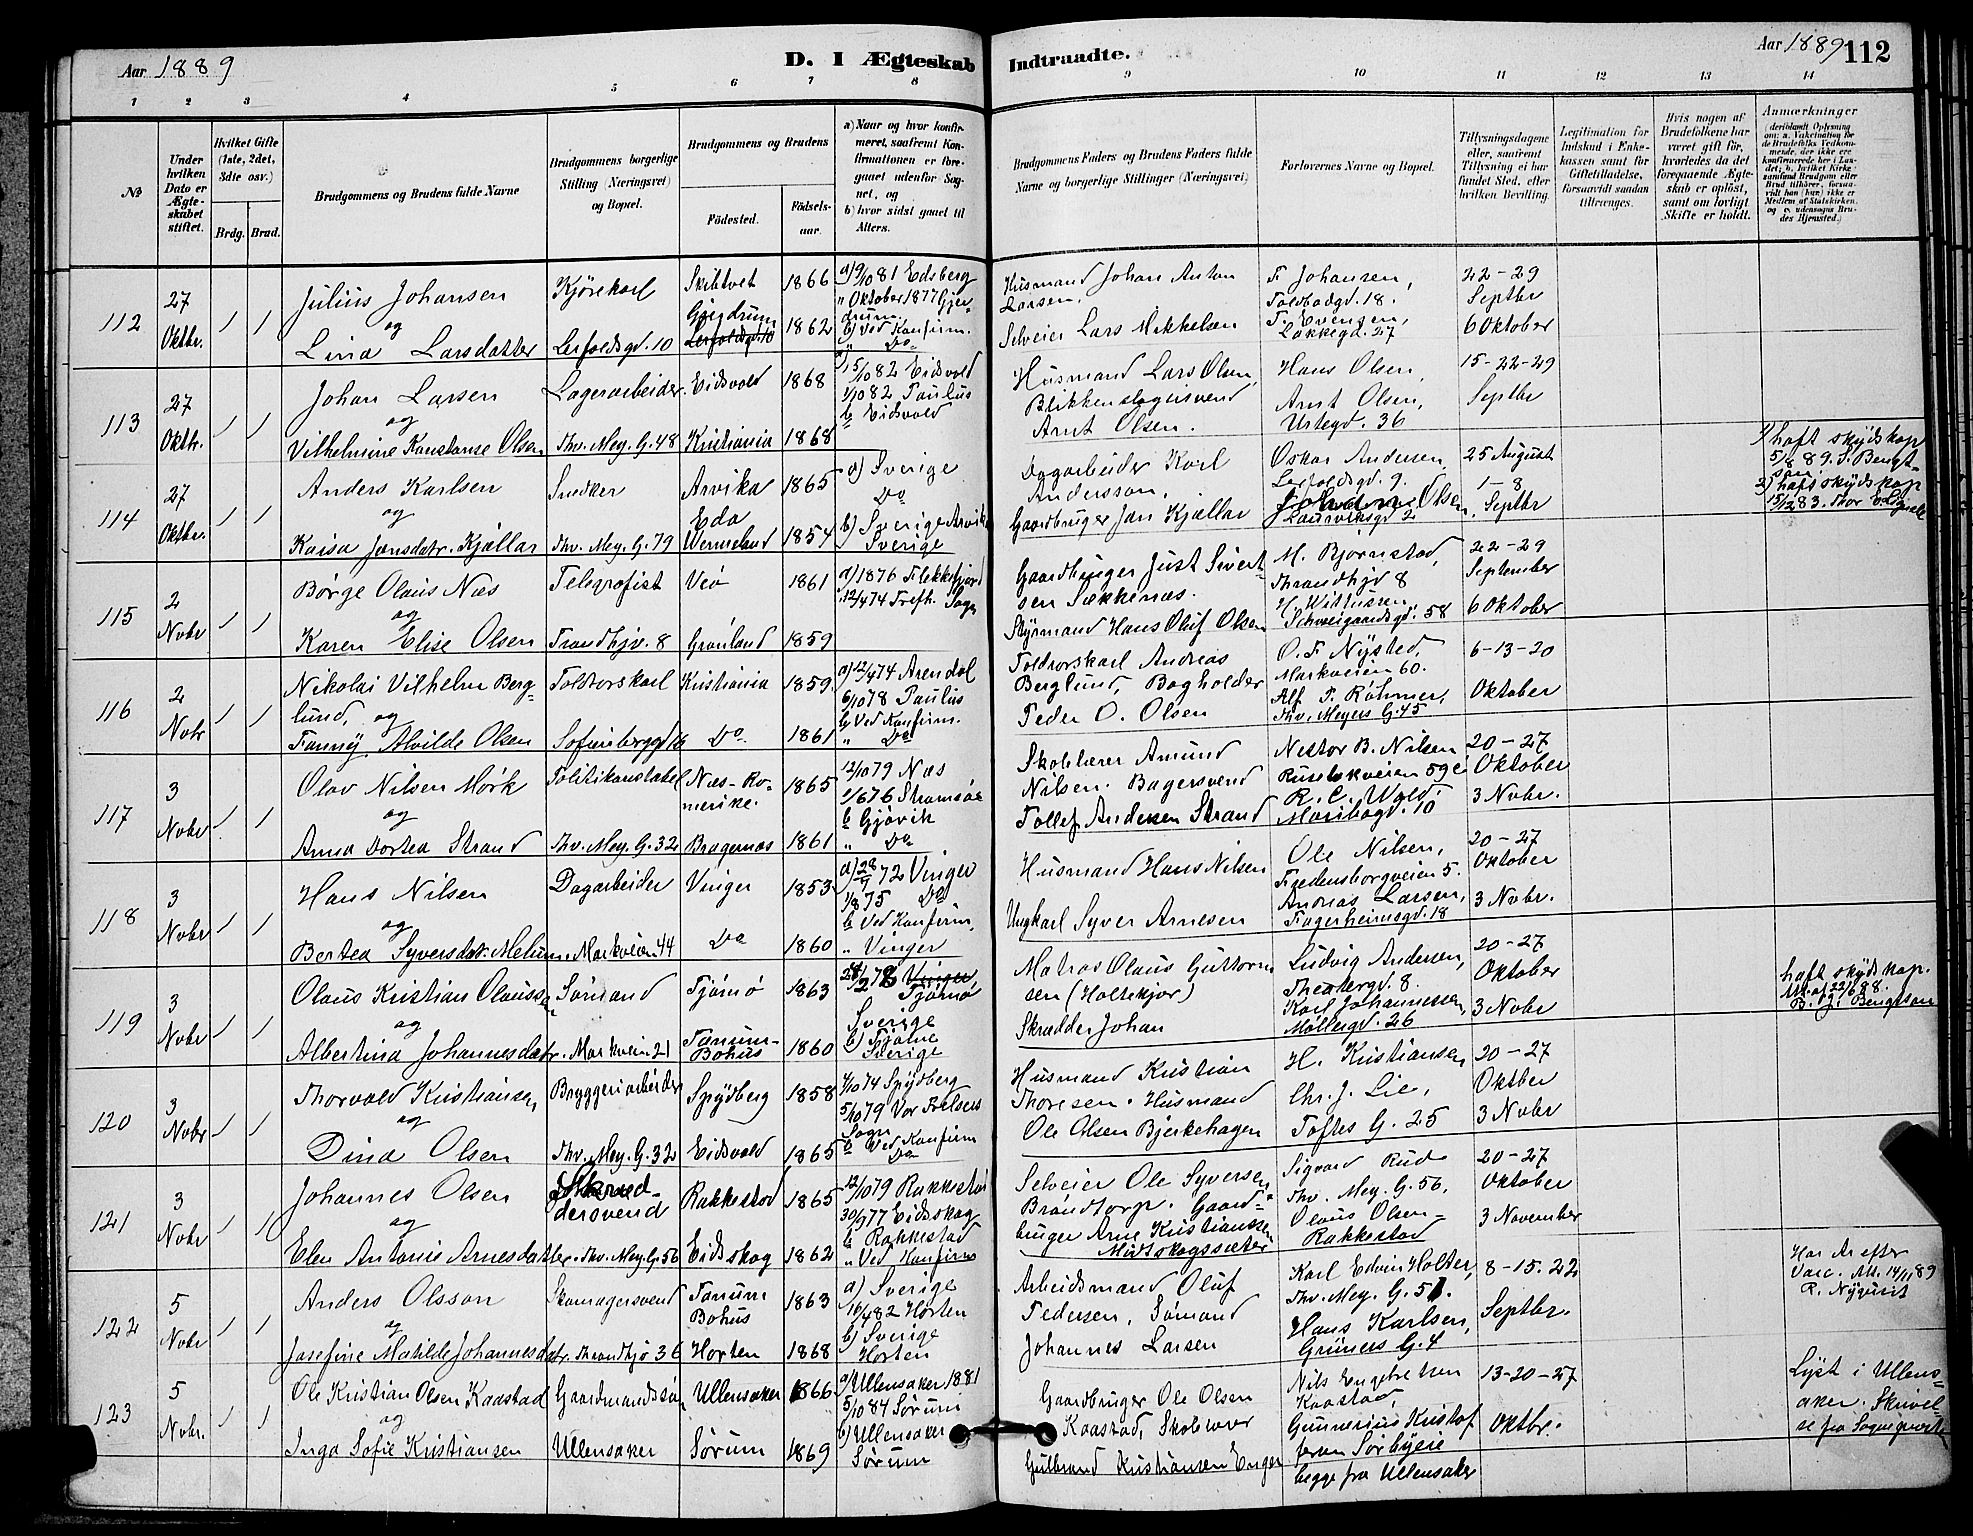 Aar 1889
D. I Ægteskab
Indtraadte.
Aar 1889 112
1 2 3 4 5 6 7 8
9 10 11 12 13 14
№
Under hvilken Dato er Ægteskabet stiftet.
Hvilket Gifte (1ste, 2det, 3dte osv.)
Brdg. Brud.
Brudgommens og Brudens fulde Navne
Brudgommens borgerlige Stilling (Næringsvei) og Bopæl.
Brudgommens og Brudens
Födested.
Födselsaar.
a) Naar og hvor konfirmeret, saafremt Konfirmationen er foregaaet udenfor Sognet, og
b) hvor sidst gaaet til Alters.
Brudgommens Faders og Brudens Faders fulde Navne og borgerlige Stillinger (Næringsvei)
Forlovernes Navne og Bopæl.
Tillysningsdagene eller, saafremt Tillysning ei har fundet Sted, efter hvilken Bevilling.
Legitimation for Indskud i Enkekassen samt for Giftetilladelse, forsaavidt saadan tiltrænges.
Hvis nogen af Brudefolkene har været gift för, hvorledes da det foregaaende Ægteskab er oplöst, samt om lovligt Skifte er holdt.
Anmærkninger
112
27 Oktbr.
1 1
Julius Johansen
og
Lina Larsdatter
Kjørekarl
Lerfoldsgd. 10
Skibtvet
Gjerdrum
1866
1862
a) 9/10 81 Edsberg
" Oktober 1877 Gjerdrum
b) Ved Konfirm.
" Do
Husmand Johan Anton Larsen,
Selveier Lars Mikkelsen
F. Johansen,
Toldbodgd. 18.
F. Evensen,
Løkkegd. 27
22-29
Septbr
6 Oktober
113
27 Oktbr.
1 1
Johan Larsen
og
Vilhelmine Konstanse Olsen
Lagerarbeider
Thv. Mey. G. 48
Eidsvold
Kristiania
1868
1868
15/10 82 Eidsvold
1/10 82 Paulus
b Eidsvold
Husmand Lars Olsen,
Blikkenslagersvend
Arnt Olsen.
Hans Olsen,
Arnt Olsen,
Urtegd. 36
15-22-29
Septbr
114
27 Oktbr.
1 1
Anders Karlsen
og
Kaisa Jansdatr. Kjällar
Snedker
Thv. Mey. G. 79
Arvika
Eda
Wermeland
1865
1854
a) Sverige
Do
b) Sverige Arvika
Sverige
Dagarbeider Karl
Andersson,
Gaardbruger Jan Kjällar
Oskar Andersen
Lerfoldsgd. 9.
Olsen,
Laurviksgd 2
25 August
1-8
Septbr
1) haft skydskap
5/8 89. S. Bengtson.
2) haft skydskap
15/12 83. Thor
115
2 Nobr
1 1
Børge Olaus Næs
og
Karen Elise Olsen
Telegrafist
Trondhjv. 8
Veö
Grønland
1861
1859
a) 1876 Flekkefjord
12/4 74 Trefh. Sogn
Gaardbruger Just Sivertsen Sekkenæs.
Styrmand Hans Oluf Olsen
M. Bjørnstad,
Thrandhjv 8
H. Wittussen,
Schweigaardsgd. 58
22-29
September
6 Oktober
116
2 Nobr
1 1
Nikolai Vilhelm Berglund,
og
Fanny Alvilde Olsen
Toldrorskarl
Sofienberggd 16
Kristiania
Do
1859
1861
a) 12/4 74 Arendal
6/10 78 Paulus
b Ved Konfirm.
" Do
Toldrorskarl Andreas
Berglund, Bogholder
Peder O. Olsen
O. F. Nysted,
Markveien 60.
Alf. F. Røhmer,
Thv. Meyers G. 45
6-13-20
Oktober
117
3 Nobr
1 1
Olav Nilsen Mørk
og
Anna Dortea Strand
Politikonstabel
Thv. Mey. G. 32
Næs-Romerike.
Bragernæs
1865
1861
12/10 79 Næs
1/6 76 Strømsøe
b Gjøvik
" Do
Skolelærer Amund
Nilsen. Bagersvend
Tollef Andersen Strand
Nestor B. Nilsen
Ruseløkveien 59 c
R. C. Wold,
Maribogd. 10
20-27
Oktober
3 Nobr.
118
3 Nobr
1 1
Hans Nilsen
og
Bertea Syversdatr. Melum
Dagarbeider
Markveien 44
Vinger
Do
1853
1860
a) 28/9 72 Vinger
1/8 75 Do
b Ved Konfirm,
" Vinger
Husmand Hans Nilsen
Ungkarl Syver Arnesen
Ole Nilsen,
Fredensborgveien 5.
Andreas Larsen,
Fagerheimsgd. 18
20-27
Oktober
3 Nobr.
119
3 Nobr
1 1
Olaus Kristian Olaussen
og
Albertina Johannesdatr.
Sømand
Markveien 21
Tjømø
Tanum-
Bohus
1863
1860
Tjømø
Sverige
b) Tjømø
Sverige
Matros Olaus Guttormsen (Holtekjær)
Skrædder Johan
Ludvig Andersen,
Theatergd. 8.
Karl Johannessen,
Møllergd. 26
20-27
Oktober
3 Nobr
haft skydskap.
Att. af 22/6 88.
B. J. Bengtson
120
3 Nobr
1 1
Thorvald Kristiansen
og
Dina Olsen
Bryggeriarbeider
Thv. Mey. G. 32
Spydberg
Eidsvold
1858
1865
4/10 74 Spydberg
5/10 79 Vor Frelsers
Sogn
b Ved Konfirm
Do
Husmand Kristian
Thoresen. Husmand
Ole Olsen Bjerkehagen
H. Kristiansen,
Chr. J. Lie,
Toftes G. 25
20-27
Oktber
3 Nobr
121
3 Nobr
1 1
Johannes Olsen
og
Elen Antonie Arnesdatter.
Skræddersvend
Thv. Mey. G. 56
Rakkestad
Eidskog
1865
1862
12/10 79 Rakkestad
30/9 77 Eidskog
b Rakkestad
" Ved Konfirm
Selveier Ole Syversen
Brøndtorp. Gaardbruger Arne Kristianssen
Midtskogssæter
Sigvard Rud
Thv. Mey. G. 56,
Olaus Olsen-
Rakkestad
20-27
Oktober
3 November
122
5 Nobr
1 1
Anders Olsson
og
Josefine Matilde Johannesdatr.
Skomagersvend
Throndhjv 36
Tanum
Bohus
Horten
1863
1868
a) Sverige
16/4 82 Horten
b) Sverige
Horten
Arbeidsmand Oluf
Pedersen, Sømand
Johannes Larsen
Karl Edvin Holter,
Thv. Mey. G. 51.
Hans Karlsen,
Grüners G. 4
8-15. 22
Septbr.
Har Ar efter
Vacc. Att. 14/11 89
R. Nyqvist
123
5 Nobr.
1 1
Ole Kristian Olsen Kaastad
og
Inga Sofie Kristiansen
Gaardmandssøn
Ullensaker
Ullensaker
Sørum
1866
1869
a) Ullensaker 1881
5/10 84 Sørum
b) Ullensaker
Sørum
Gaardbruger Ole Olsen
Kaastad, Skolelærer
Gulbrand Kristiansen Enger
Nils Engebretsen
Kaastad,
Gunnerius Kristofersen Sørbyeie
begge fra Ullensaker
13-20-27
Oktbr.
Lyst i Ullensaker. Skrivelse fra Sognepresten